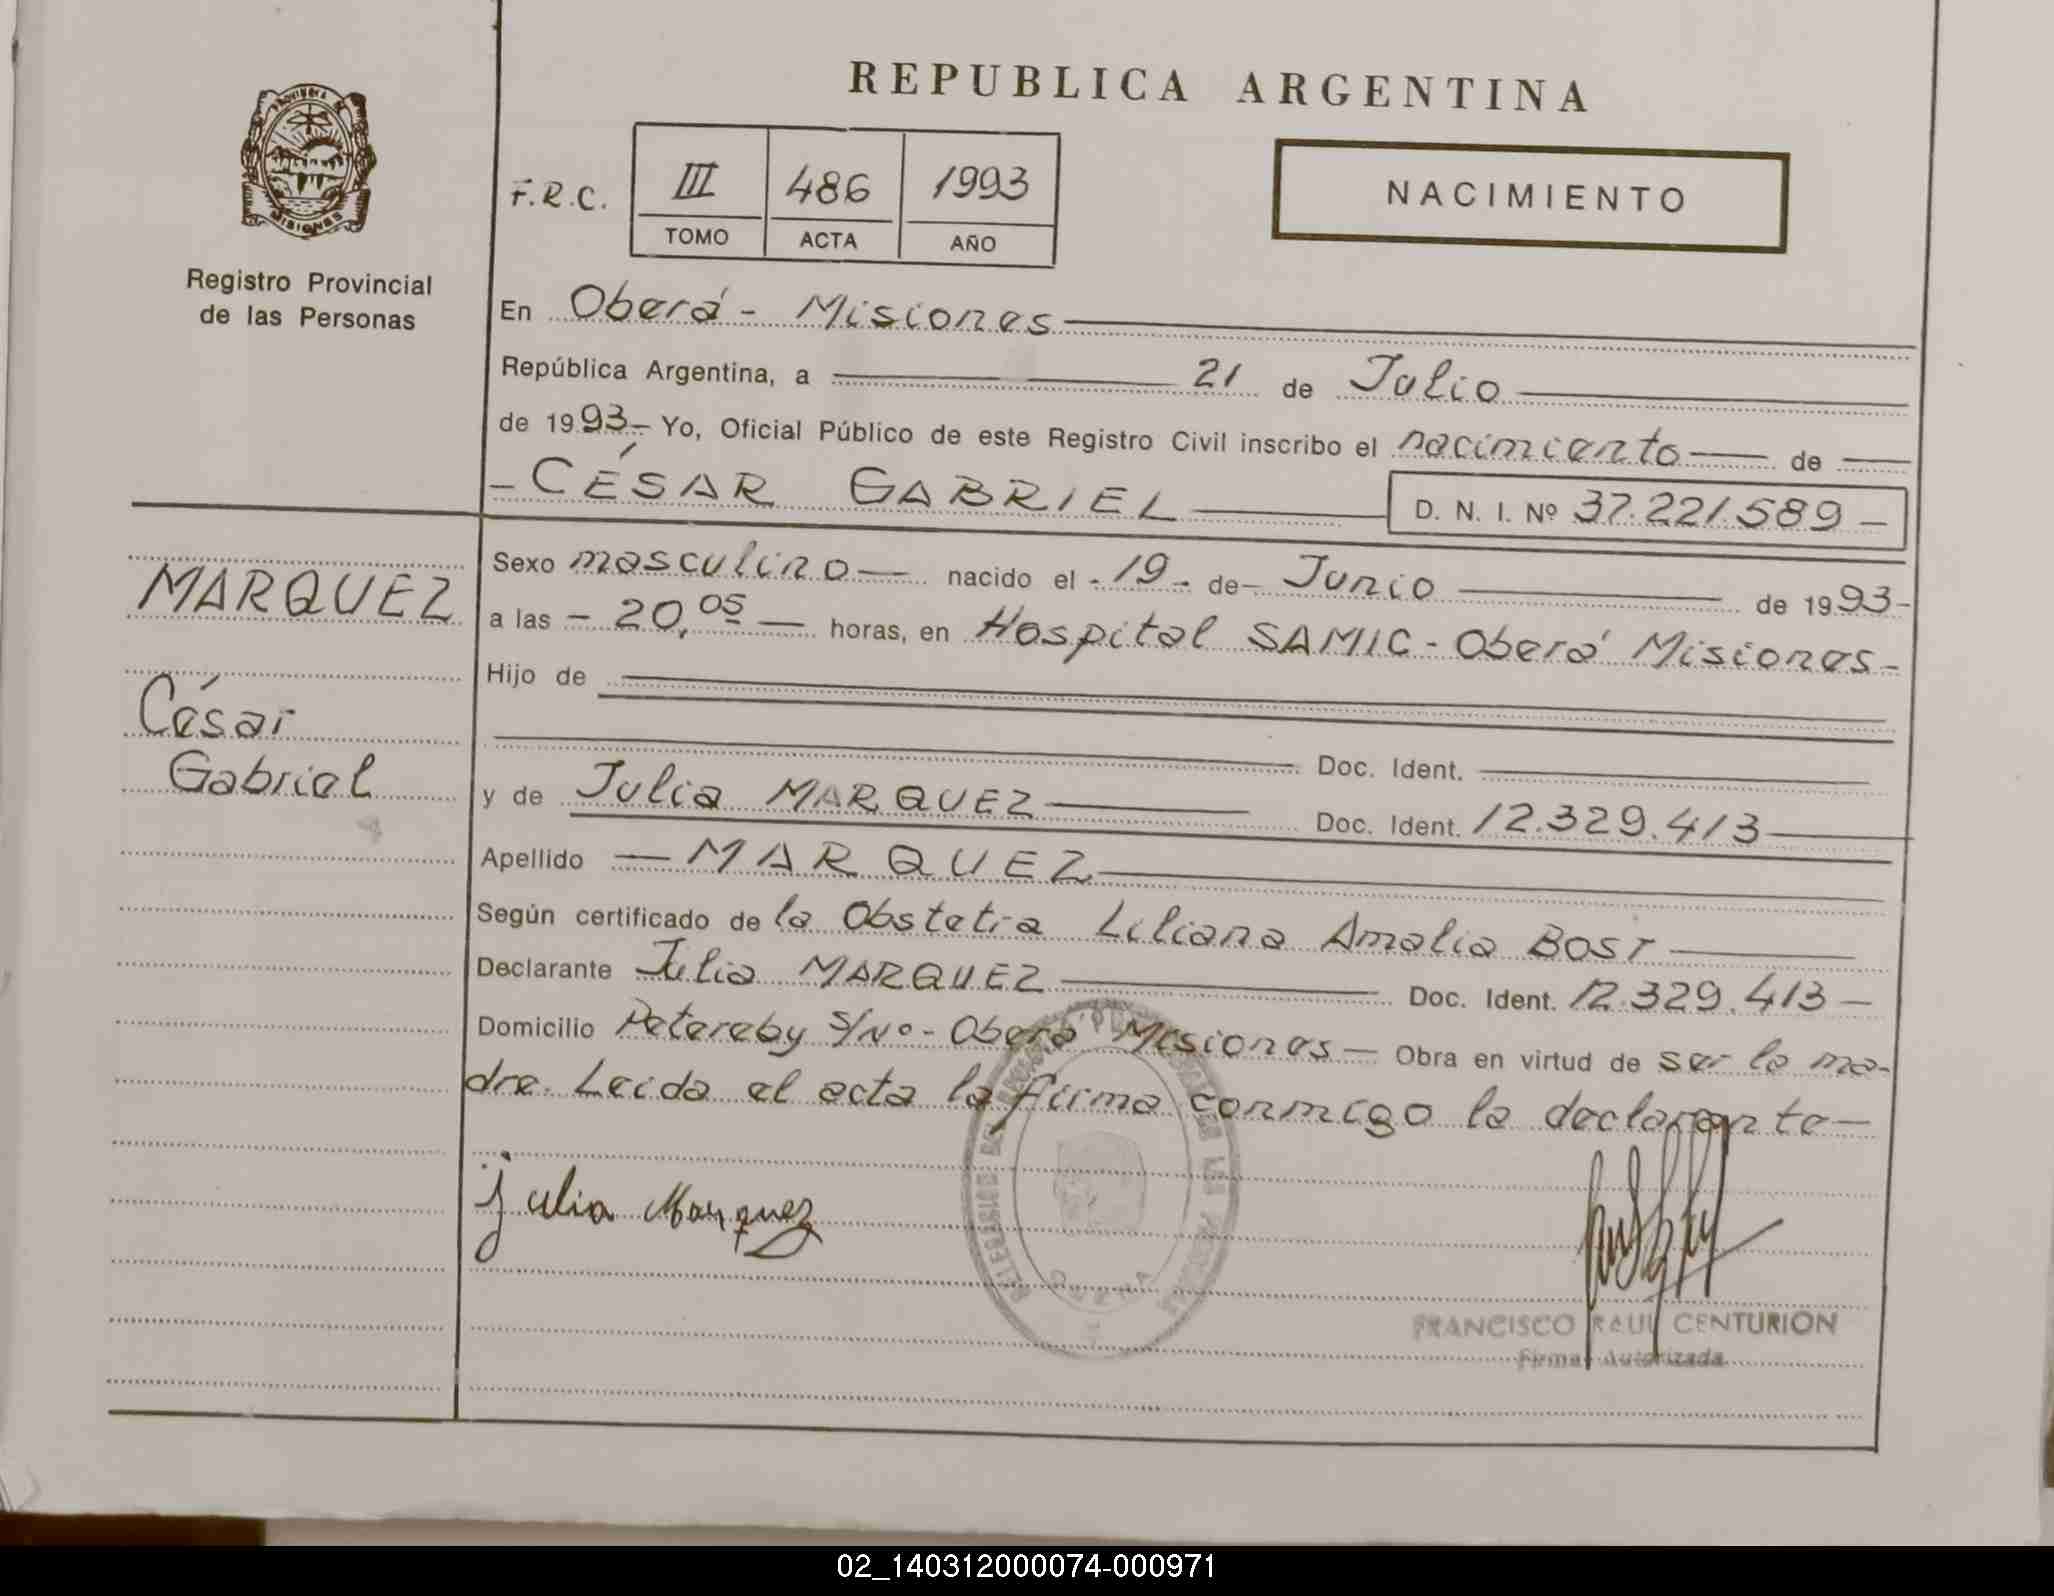 REPUBLICA ARGENTINA
PROVINCIA DE MISIONES
Registro Provincial
de las Personas
F.R.C.
III 486 1993
TOMO ACTA AÑO
NACIMIENTO
En Oberá - Misiones
República Argentina, a 21 de Julio
de 1993- Yo, Oficial Público de este Registro Civil inscribo el nacimiento de
- CÉSAR GABRIEL D. N. I. Nº 37.221.589 -
MARQUEZ
César
Gabriel
Sexo masculino nacido el - 19 - de - Junio de 1993-
a las - 20,05 - horas, en Hospital SAMIC - Oberá Misiones -
Hijo de
Doc. Ident.
y de Julia MARQUEZ Doc. Ident. 12.329.413
Apellido - MARQUEZ
Según certificado de la Obstetra Liliana Amalia BOST
Declarante Julia MARQUEZ Doc. Ident. 12.329.413 -
Domicilio S/Nº - Oberá Misiones - Obra en virtud de ser la ma-
dre. Leida el acta la firma conmigo la declarante -
Julia Marquez
FRANCISCO RAUL CENTURION
Firma Autorizada
02_140312000074-000971